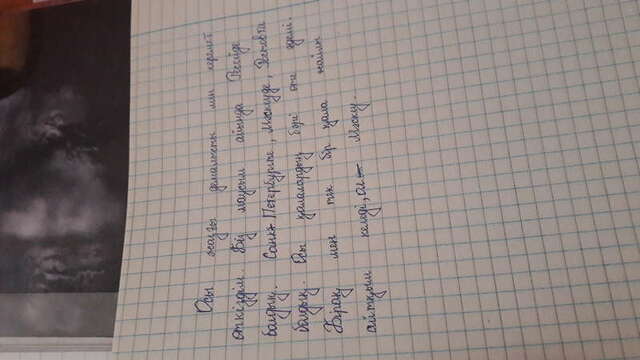 Осы жазғы демалысты мен керемет
өткіздім. Біз маусым айында Ресейде
болдық. Санкт Петербургте, Мәскеуде, Ростовта
болдық. Осы қалалардың бәрі өте әдемі.
Бірақ мен тек бір қала жайлы
айтқым келеді, ол - Мәскеу.